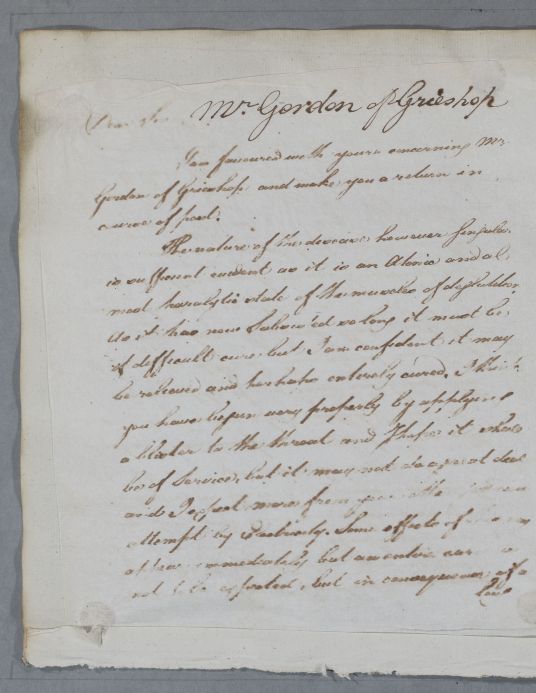 Mr. Gordon of Grieshop
Dear Sir
I am favoured with yours concerning Mr
Gordon of Grieshop and make you a return in
course of post.
The nature of the disease however singular
is sufficient evident as it is an Atonia and al
most paralytic state of the muscles of deglutition
As it has now subsisted so long it must be
of difficult cure but I am confident it may
be relieved and perhaps entirely cured. I think
you have begun very properly by applying
a blister to the throat and I hope it shall
be of Service, but it may not do a great deal
and I expect more from your other
attempt by Electricity. Some effects of
appear immediately but an entire cure
not to be expected, but in consequence of a
Long